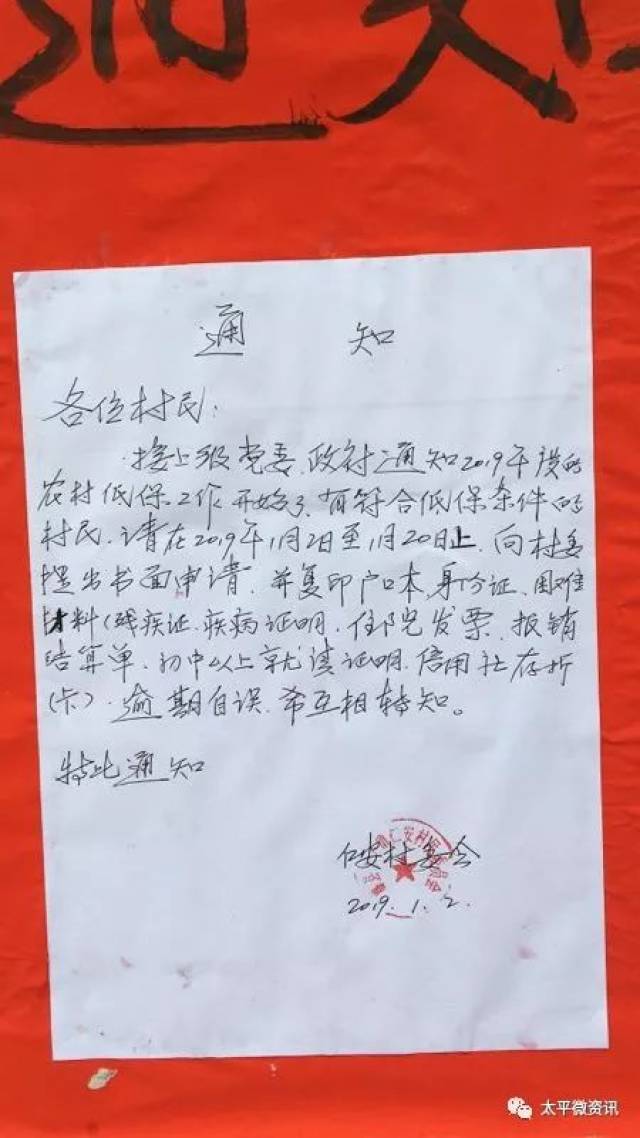 通知
通知
各位村民：
接上级党委、政府通知2019年度的
农村低保工作开始了，有符合低保条件的
村民，请在2019年1月2日至1月20日止，向村委
提出书面申请，并复印户口本，身份证、困难
材料(残疾证、疾病证明，住院发票、报销
结算单，初中以上就读证明，信用社存折
(卡)，逾期自误，希互相转知。
特此通知
仁安村委会
2019.1.2.
太平微资讯